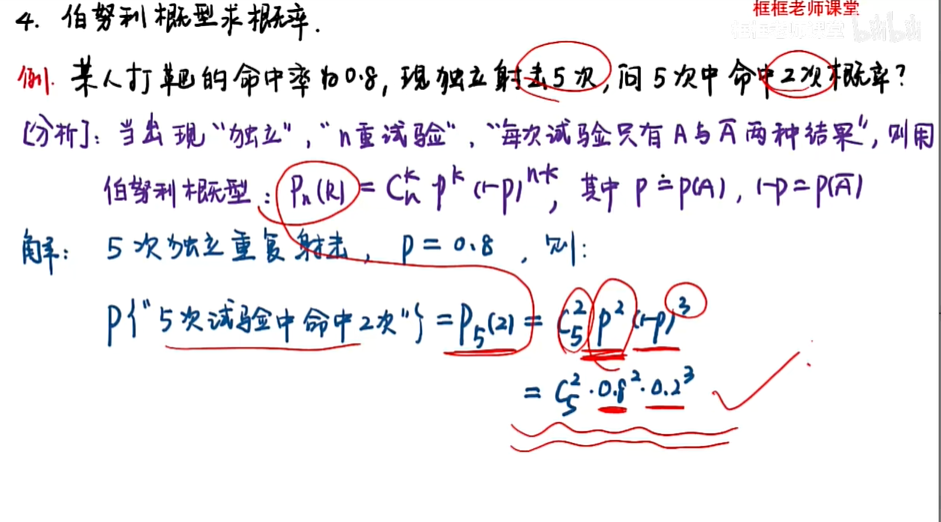 框框老师课堂
框框老师课堂 bilibili
4. 伯努利概型求概率.
例. 某人打靶的命中率为0.8, 现独立射击5次, 问5次中命中2次概率?
[分析]: 当出现“独立”, “n重试验”, “每次试验只有A与Ā两种结果”, 则用
伯努利概型: Pₙ(k) = Cₙᵏ pᵏ (1-p)ⁿ⁻ᵏ, 其中 p ≐ p(A), 1-p = p(Ā)
解: 5次独立重复射击, p = 0.8, 则:
P{“5次试验中命中2次”} = P₅(2) = C₅² p² (1-p)³
= C₅² · 0.8² · 0.2³